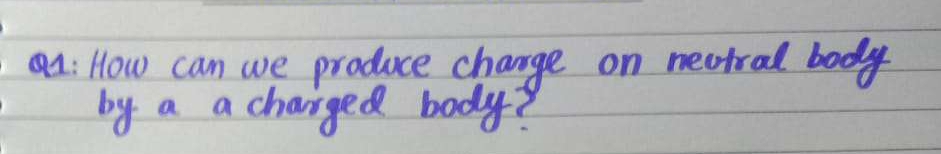 Q1: How can we produce charge on neutral body
by a a charged body?